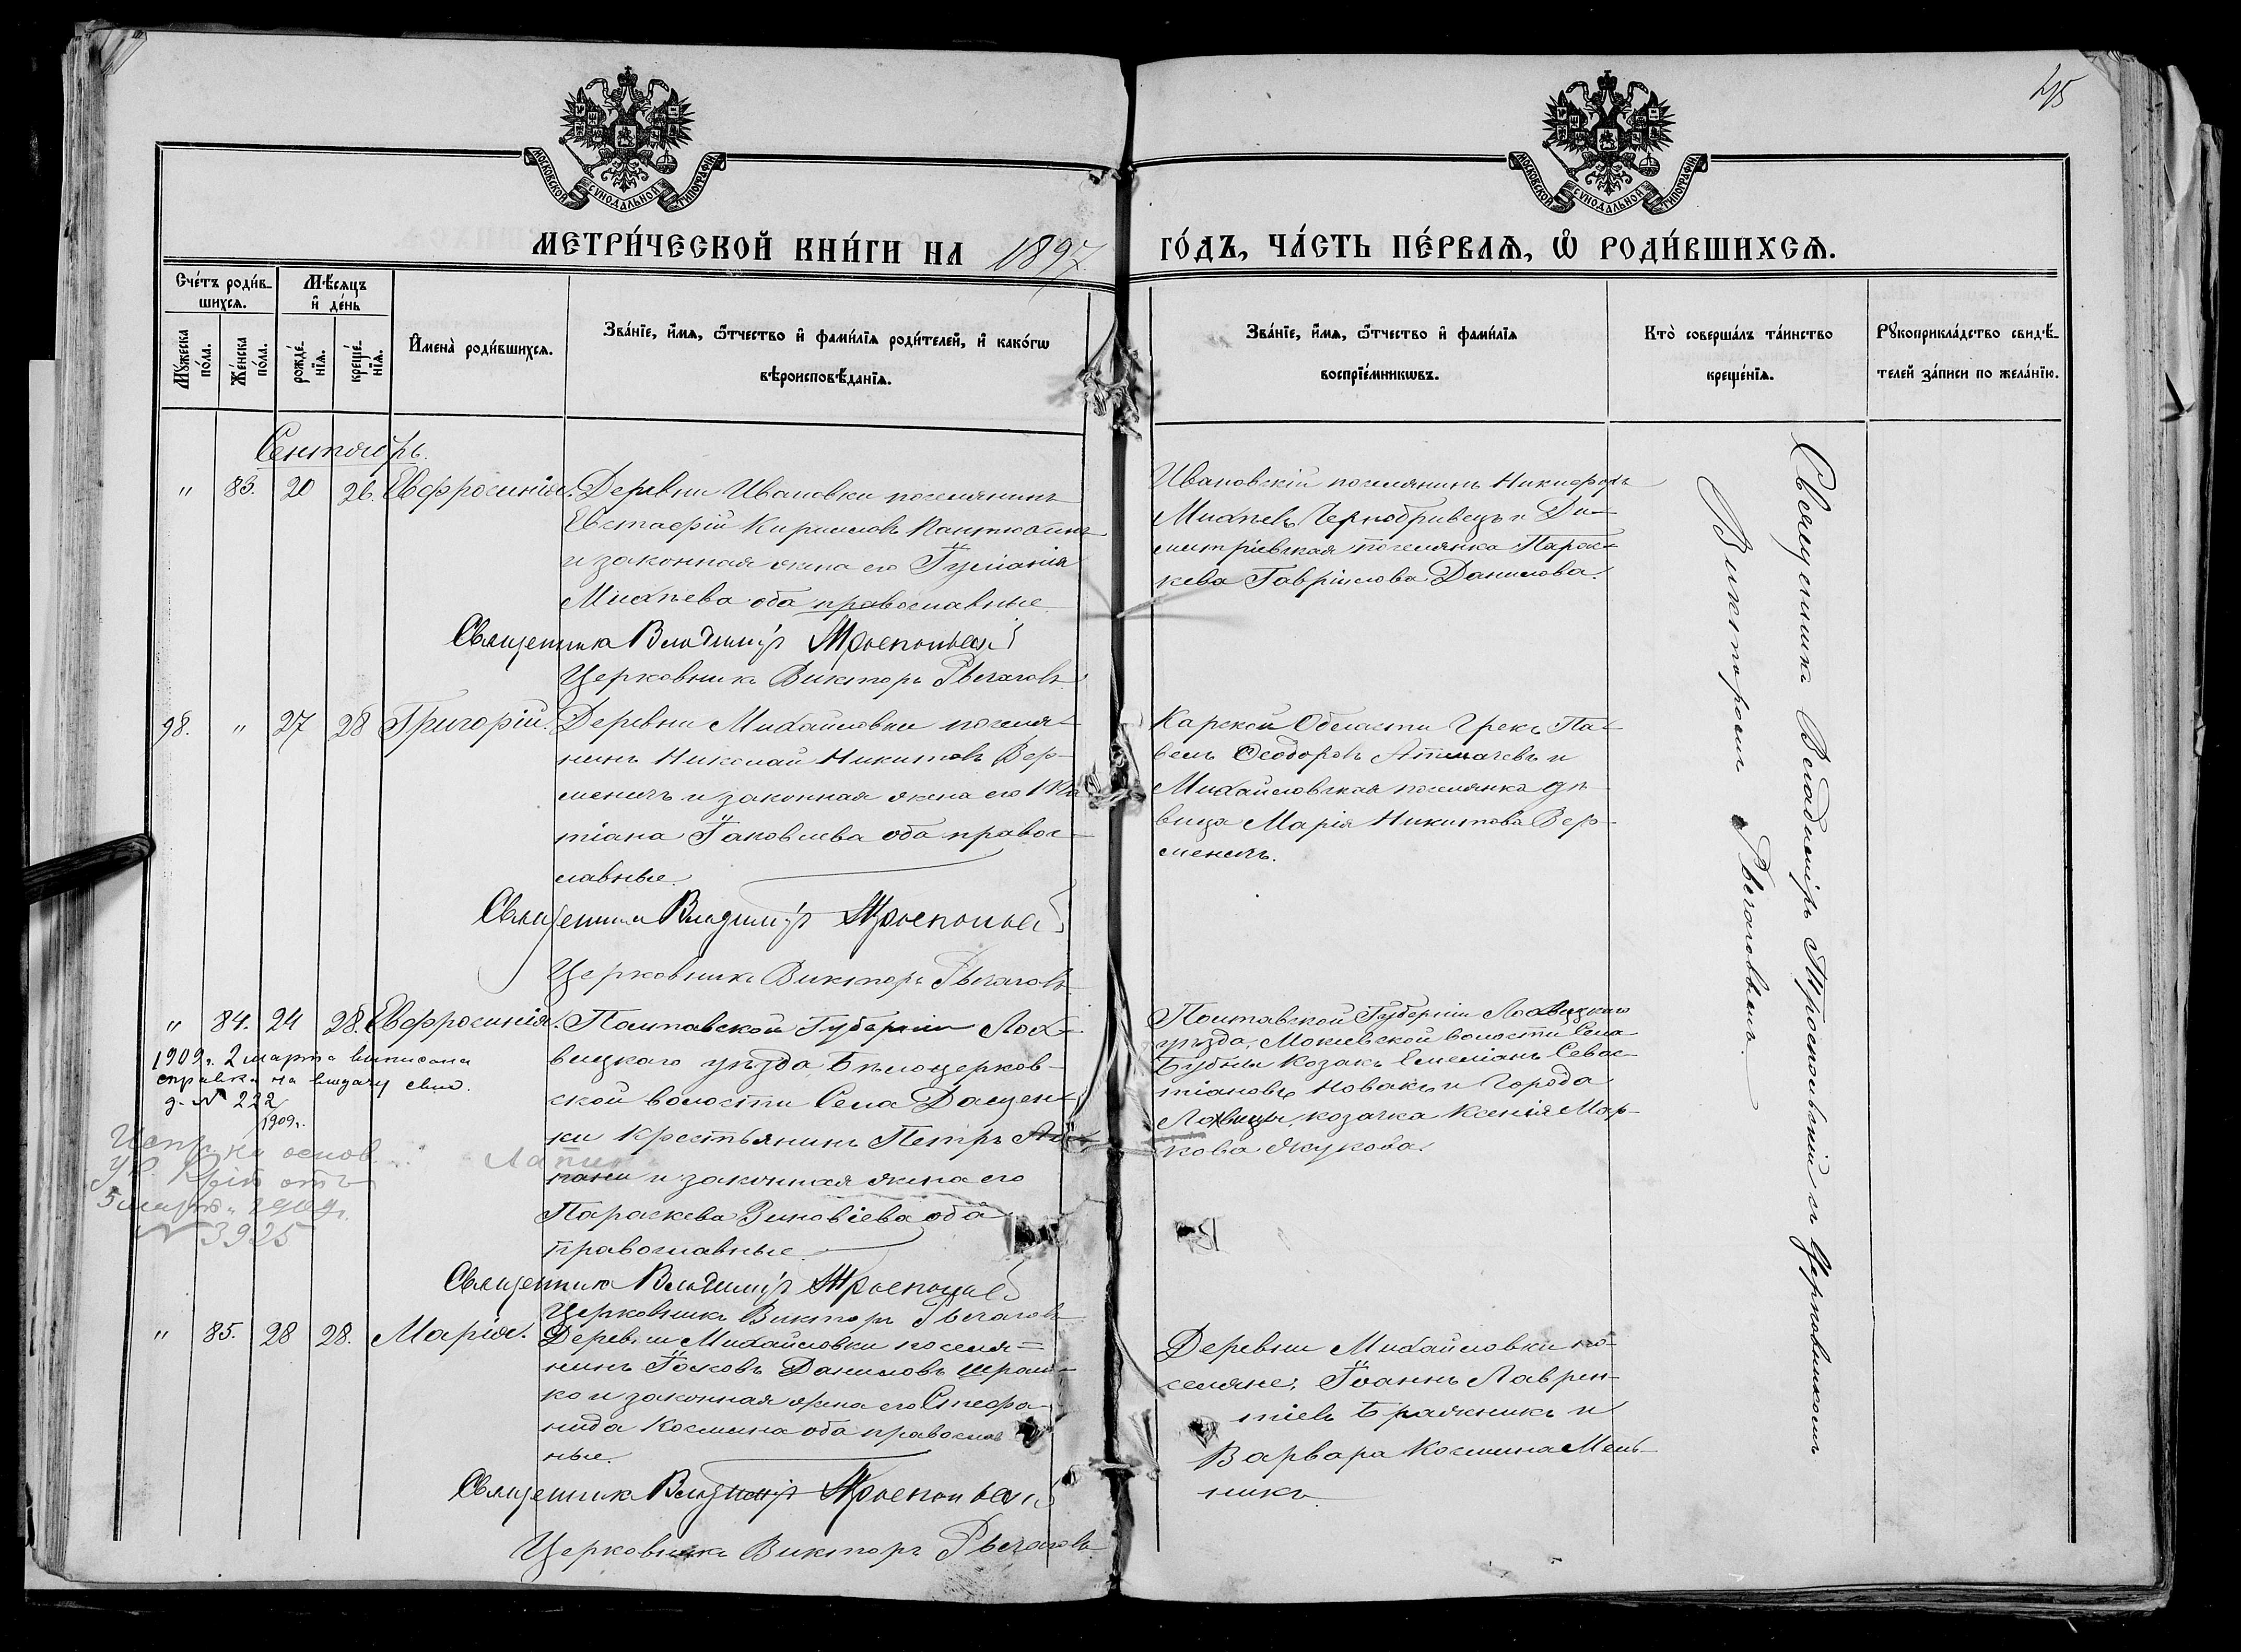 45
МОСКОВСКОЙ СѴНОДАЛЬНОЙ ТИПОГРАФІИ
МОСКОВСКОЙ СѴНОДАЛЬНОЙ ТИПОГРАФІИ
МЕТРИ́ЧЕСКОЙ КНИ́ГИ НА 1897 ГО́ДЪ, ЧА́СТЬ ПЕ́РВАѦ, Ѡ РОДИ́ВШИХСѦ.
Сче́тъ роди́вшихсѧ.
Мꙋ́жеска по́ла.
Же́нска по́ла.
Мѣ́сѧцъ и де́нь
рожде́нїѧ.
креще́нїѧ.
И҆мена̀ роди́вшихсѧ.
Зва́нїе, и҆́мѧ, ѻ҆́тчество и҆ фами́лїѧ роди́телей, и҆ како́гѡ
вѣроисповѣ́данїѧ.
Зва́нїе, и҆́мѧ, ѻ҆́тчество и҆ фами́лїѧ
воспрїе́мникѡвъ.
Кто̀ соверша́лъ та́инство
креще́нїѧ.
Рꙋкоприкла́дство свидѣ́-
телей за́писи по жела́нїю.
Сентябрь.
" 83. 20 26. Евфросинія.
Деревни Ивановки поселянинъ
Евстафій Кирилловъ
и законная жена его Іуліанія
Михѣева оба православные
Священникъ Владиміръ Троепольскій
Церковникъ Викторъ Рычаговъ
Ивановскій поселянинъ Никифоръ
Михѣевъ Чернобривецъ и Ди-
митріевская поселянка Парас-
кева Гавріилова Данилова.
98. " 27 28 Григорій.
Деревни Михайловки поселя-
нинъ Николай Никитовъ Вер-
меничъ и законная жена его
тіана Іаковлева оба право-
славные.
Священникъ Владиміръ Троепольскій
Церковникъ Викторъ Рычаговъ
Карской Области Грекъ Па-
велъ Ѳеодоровъ и
Михайловская поселянка дѣ-
вица Марія Никитова Вер-
меничъ.
" 84. 24 28. Евфросинія.
1909г. 2 марта выписана
справка на выдачу свид.
з. № 222
1909г.
Испр. на основ.
отъ
5 марта 1909г.
№ 3925
Полтавской Губерніи Лох-
вицкаго уѣзда Бѣлоцерков-
ской волости Села Дащен-
ки Крестьянинъ Петръ
и законная жена его
Параскева Зиновіева оба
православные.
Священникъ Владиміръ Троепольскій
Церковникъ Викторъ Рычаговъ
Полтавской Губерніи Лохвицкаго
уѣзда, волости Села
Бубны Козакъ Емеліанъ Севас-
тіановъ Новакъ и Города
Лохвицы, козачка Ксенія Мар-
кова Жукова.
" 85. 28 28. Марія.
Деревни Михайловки поселя=
нинъ Іаковъ Даниловъ
ко и законная жена его Стефа-
нида Космина оба православ
ные.
Священникъ Владиміръ Троепольскій
Церковникъ Викторъ Рычаговъ
Деревни Михайловки по-
селяне: Іоаннъ Лаврен-
тіевъ Бражникъ и
Варвара Космина Мель-
никъ
Священникъ Владиміръ Троепольскій съ Церковникомъ
Викторомъ Рычаговымъ.